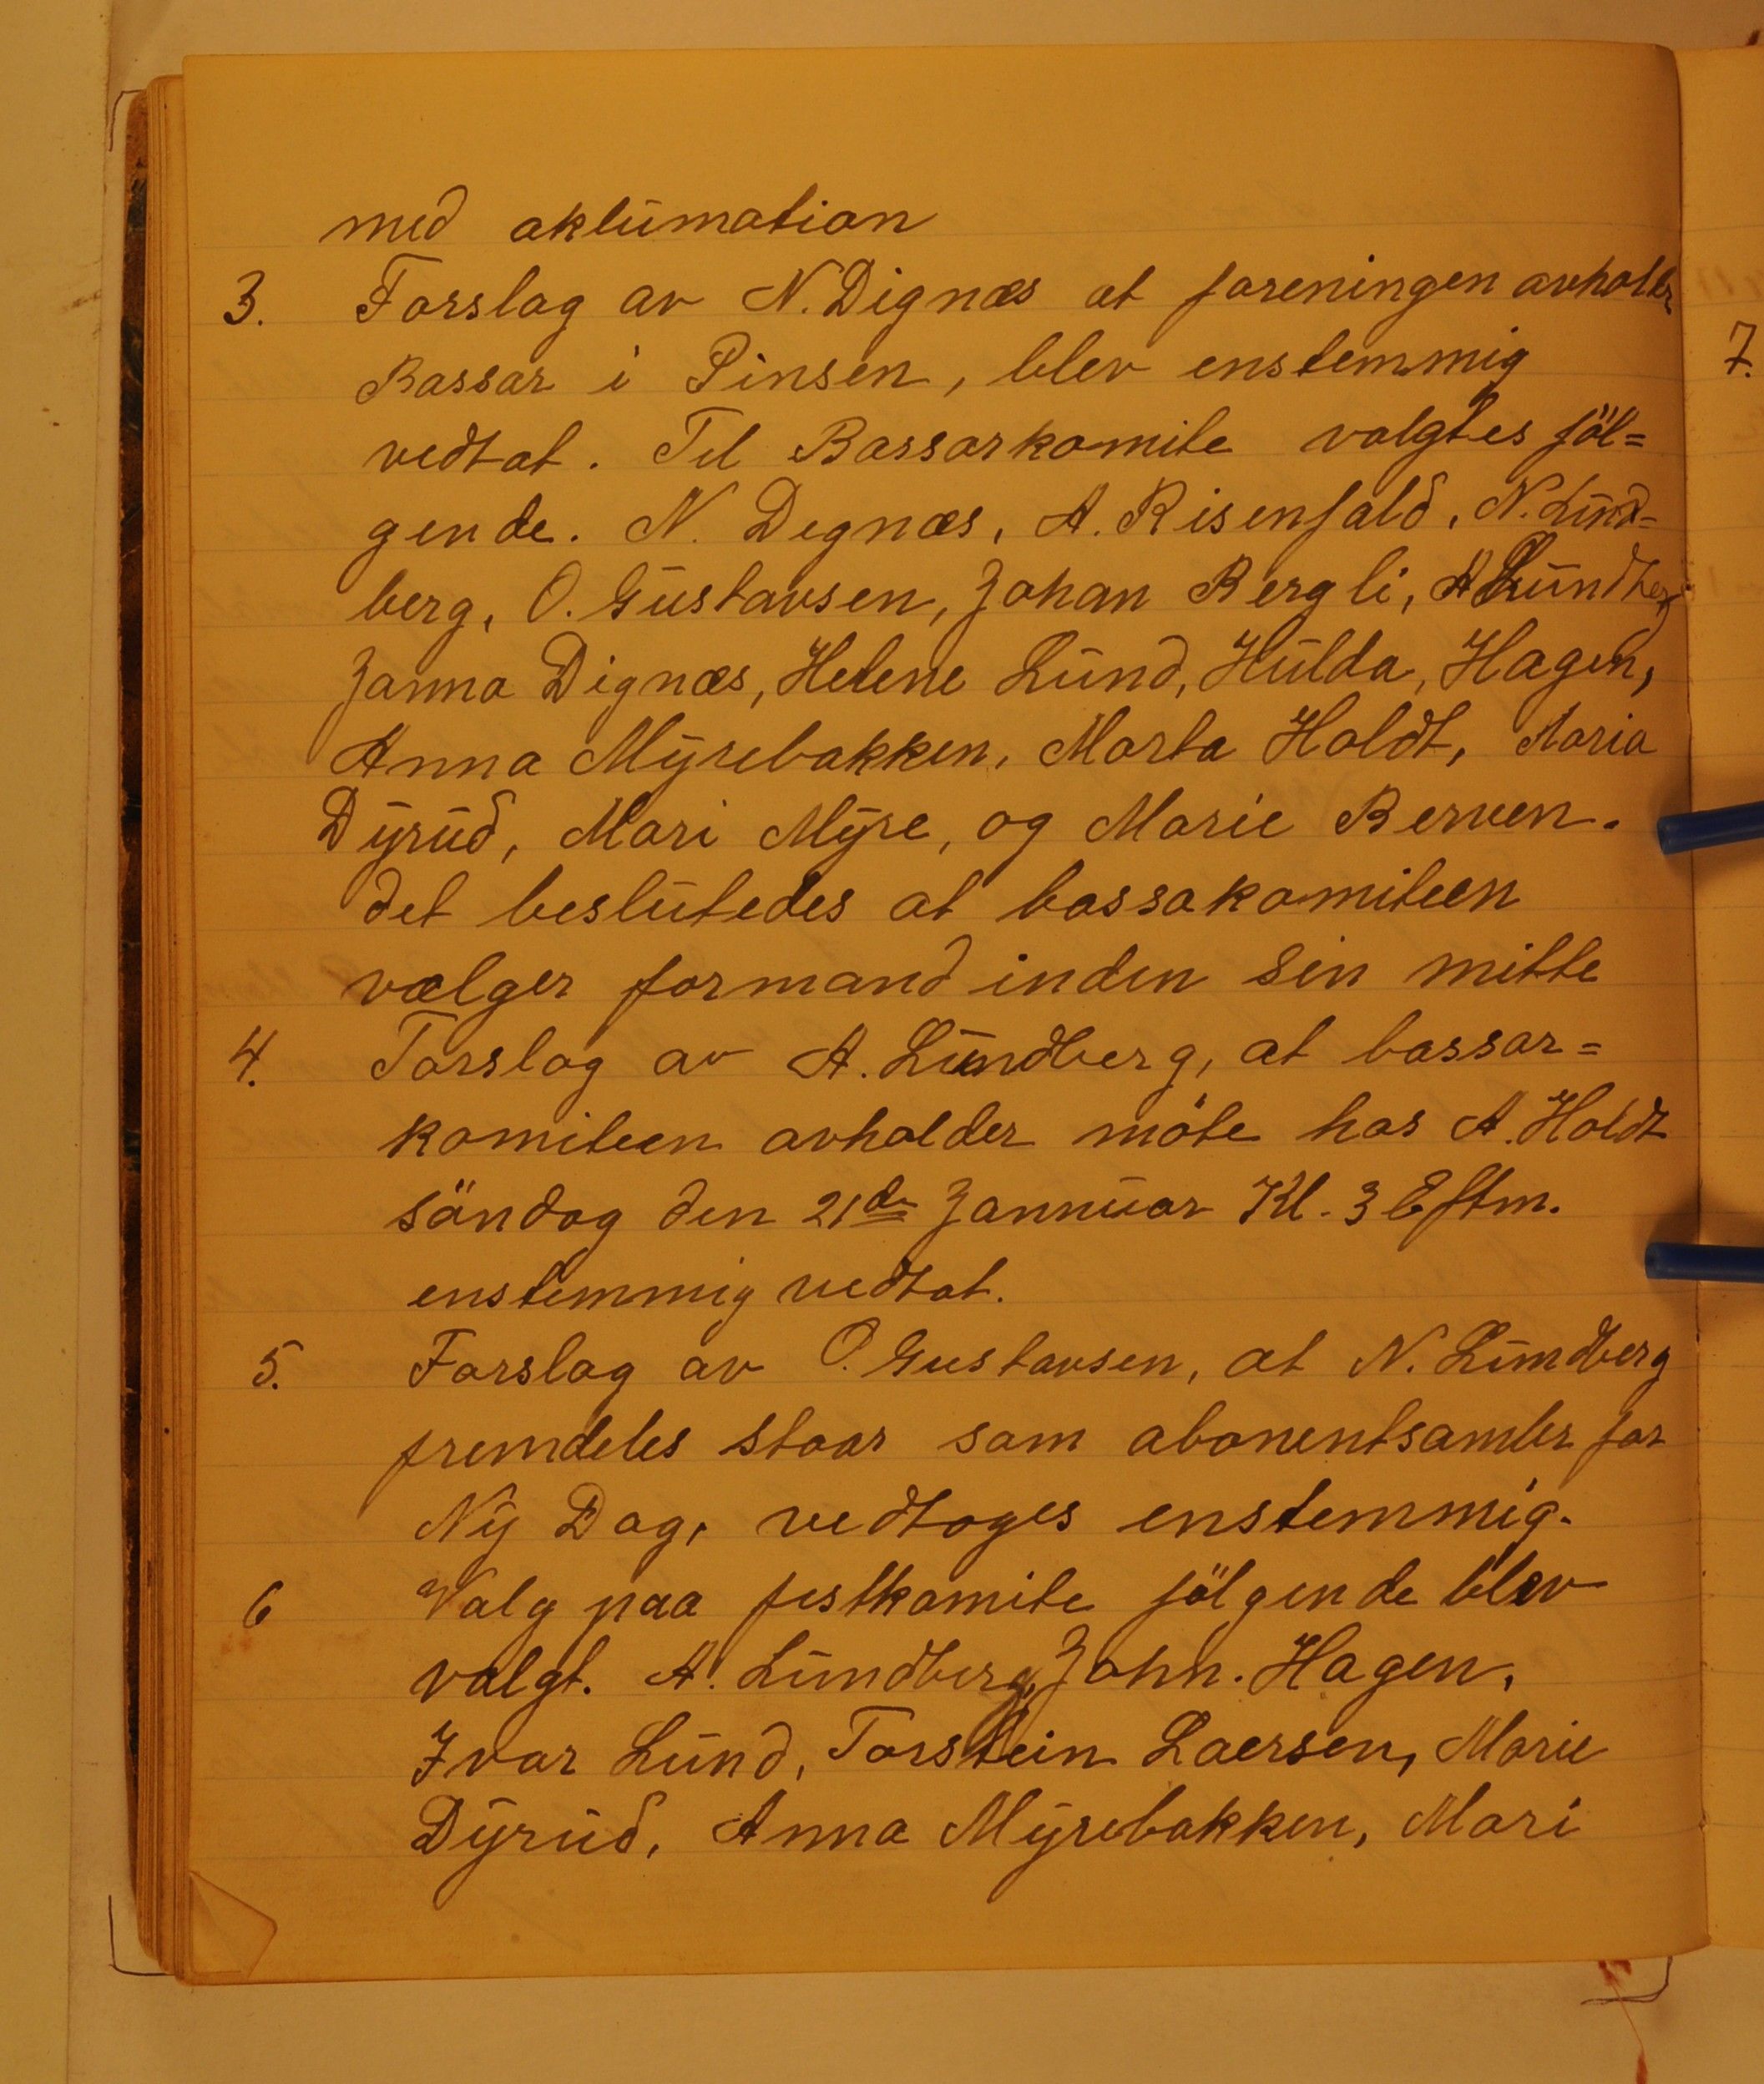 med aklumation
3. Forslag av N. Dignæs at foreningen avholder
Bassar i Pinsen, blev enstemmig
vedtat. Til Bassarkomite valgtes föl=
gende. N. Degnæs, A. Risenfald, N. Lund=
berg, O. Gustavsen, Johan Bergli, A Lundberg
Janna Dignæs, Helene Lund, Hulda, Hagen,
Anna Myrebakken, Marta Holdt, Maria
Dyrud, Mari Myre, og Marie Berven.
det beslutedes at bassakomiteen
vælger formand inden sin mitte
4. Forslag av A. Lundberg, at bassar=
komiteen avholder möte hos A. Holdt
söndag den 21de Jannuar Kl. 3 Eftm.
enstemmig vedtat.
5. Forslag av O. Gustavsen, at N. Lundberg
fremdeles staar som abonentsamler for
Ny Dag, vedtoges enstemmig.
6 Valg paa festkomite fölgende blev
valgt. A. Lundberg, John. Hagen,
Ivar Lund, Torstein Laersen, Marie
Dyrud, Anna Myrebakken, Mari
7.